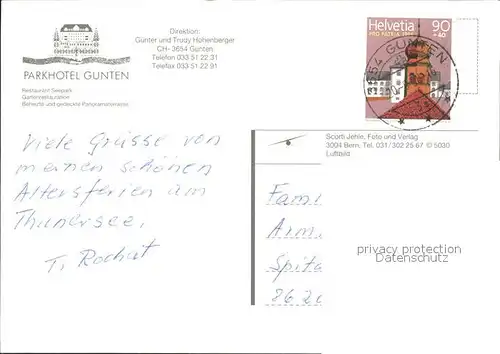 PARKHOTEL GUNTEN
Restaurant Seepark
Gartenrestauration
Beheizte und gedeckte Panoramaterrasse
Direktion:
Günter und Trudy Hohenberger
CH- 3654 Gunten
Telefon 033 51 22 31
Telefax 033 51 22 91
Helvetia 90
PRO PATRIA +40
3654 GUNTEN
Scorti Jehle, Foto und Verlag
3004 Bern, Tel. 031/302 25 67 © 5030
Luftbild
Viele Grüsse von
meinen schönen
Altersferien am
Thunersee,
T. Rochat
Fami
Arm
Spita
8620
privacy protection
Datenschutz